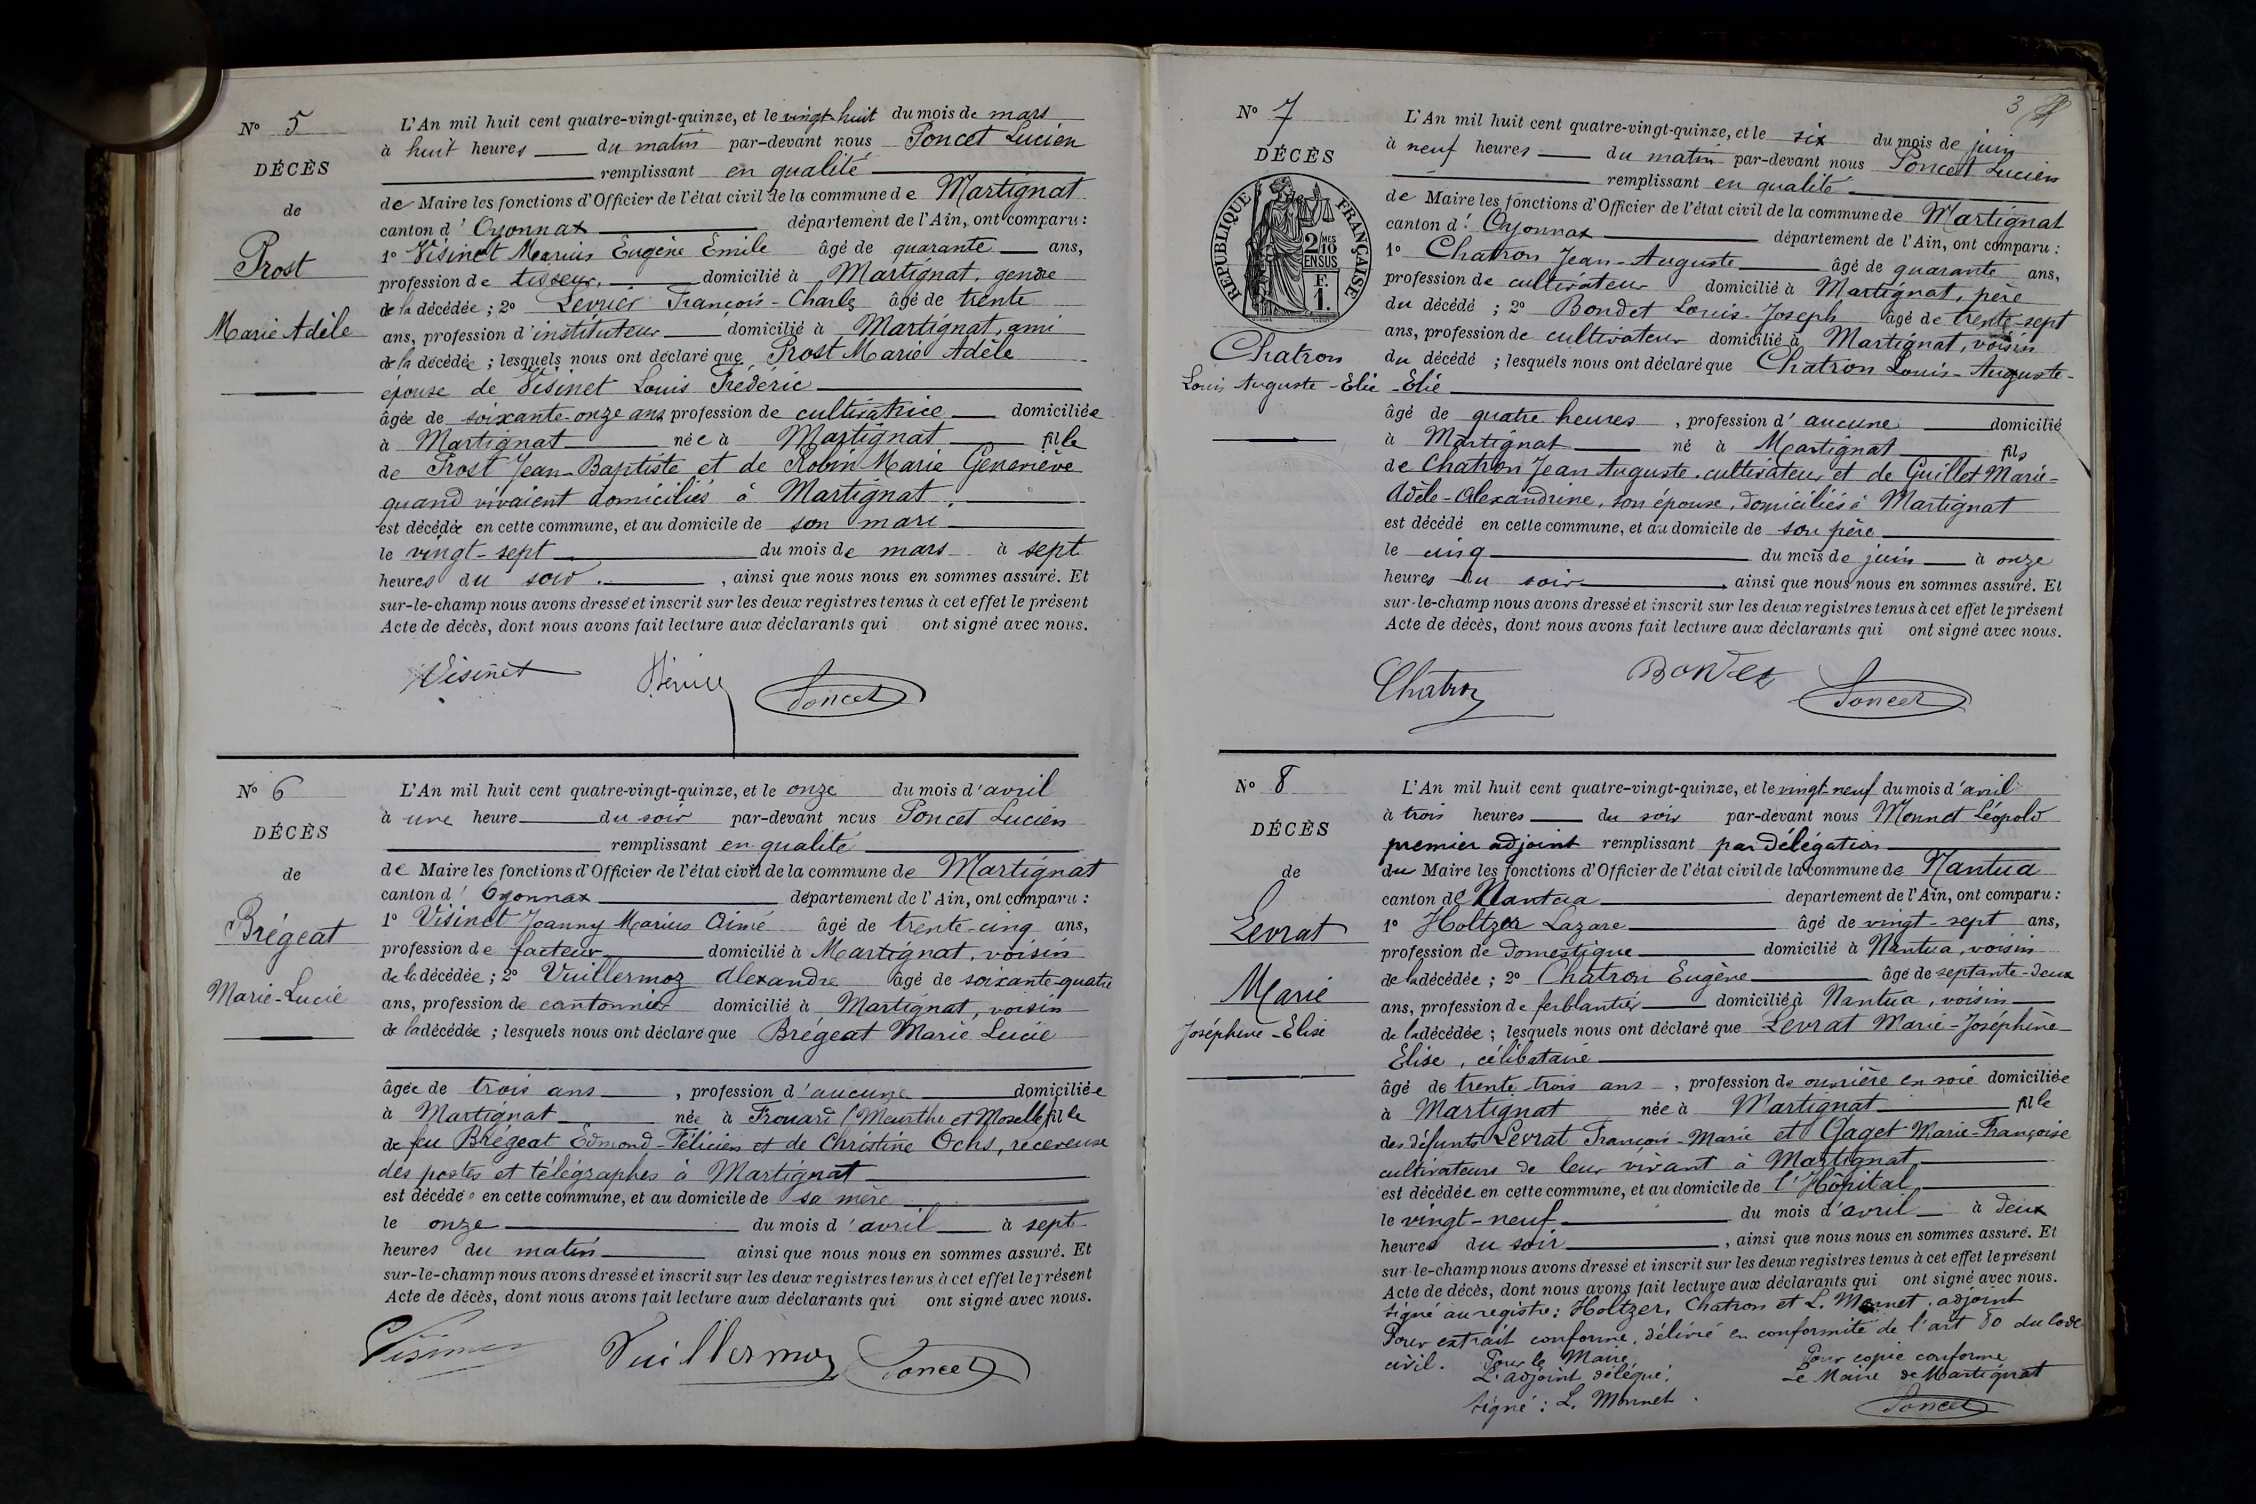 N° 5
DÉCÈS
de
Prost
Marie Adèle
L'An mil huit cent quatre-vingt-quinze, et le vingt-huit du mois de mars
à huit heures du matin par-devant nous Poncet Lucien
remplissant en qualité
de Maire les fonctions d'Officier de l'état civil de la commune de Martignat
canton d'Oyonnax département de l'Ain, ont comparu :
1° Visinet Marius Eugène Emile âgé de quarante ans,
profession de tisseur, domicilié à Martignat, gendre
de la décédée ; 2° François-Charles âgé de trente
ans, profession d'instituteur domicilié à Martignat, ami
de la décédée ; lesquels nous ont déclaré que Prost Marie Adèle
épouse de Visinet Louis Frédéric
âgée de soixante-onze ans, profession de cultivatrice domiciliée
à Martignat née à Martignat fille
de Prost Jean-Baptiste et de Robin Marie Geneviève
quand vivaient domiciliés à Martignat
est décédée en cette commune, et au domicile de son mari
le vingt-sept du mois de mars à sept
heures du soir. , ainsi que nous nous en sommes assuré. Et
sur-le-champ nous avons dressé et inscrit sur les deux registres tenus à cet effet le présent
Acte de décès, dont nous avons fait lecture aux déclarants qui ont signé avec nous.
Visinet Poncet
N° 6
DÉCÈS
de
Brégeat
Marie-Lucie
L'An mil huit cent quatre-vingt-quinze, et le onze du mois d'avril
à une heure du soir par-devant nous Poncet Lucien
remplissant en qualité
de Maire les fonctions d'Officier de l'état civil de la commune de Martignat
canton d'Oyonnax département de l'Ain, ont comparu :
1° Visinet Joanny Marius Aimé âgé de trente-cinq ans,
profession de facteur domicilié à Martignat, voisin
de la décédée ; 2° Vuillermoz Alexandre âgé de soixante-quatre
ans, profession de cantonnier domicilié à Martignat, voisin
de la décédée ; lesquels nous ont déclaré que Brégeat Marie Lucie
âgée de trois ans , profession d'aucune domiciliée
à Martignat née à Frouard (Meurthe et Moselle) fille
de feu Brégeat Edmond-Félicien et de Christine Ochs, receveuse
des postes et télégraphes à Martignat
est décédée en cette commune, et au domicile de sa mère
le onze du mois d'avril à sept
heures du matin ainsi que nous nous en sommes assuré. Et
sur-le-champ nous avons dressé et inscrit sur les deux registres tenus à cet effet le présent
Acte de décès, dont nous avons fait lecture aux déclarants qui ont signé avec nous.
Visinet Vuillermoz Poncet
3
N° 7
DÉCÈS
RÉPUBLIQUE FRANÇAISE
2/10 MES
EN SUS
F.
1.
Chatron
Louis Auguste-Elie
L'An mil huit cent quatre-vingt-quinze, et le six du mois de juin
à neuf heures du matin par-devant nous Poncet Lucien
remplissant en qualité
de Maire les fonctions d'Officier de l'état civil de la commune de Martignat
canton d'Oyonnax département de l'Ain, ont comparu :
1° Chatron Jean-Auguste âgé de quarante ans,
profession de cultivateur domicilié à Martignat, père
du décédé ; 2° Bondet Louis-Joseph âgé de trente-sept
ans, profession de cultivateur domicilié à Martignat, voisin
du décédé ; lesquels nous ont déclaré que Chatron Louis-Auguste-
-Elie
âgé de quatre heures , profession d'aucune domicilié
à Martignat né à Martignat fils
de Chatron Jean Auguste, cultivateur et de Guillot Marie-
Adèle-Alexandrine, son épouse, domiciliés à Martignat
est décédé en cette commune, et au domicile de son père
le cinq du mois de juin à onze
heures du soir , ainsi que nous nous en sommes assuré. Et
sur-le-champ nous avons dressé et inscrit sur les deux registres tenus à cet effet le présent
Acte de décès, dont nous avons fait lecture aux déclarants qui ont signé avec nous.
Chatron Bondet Poncet
N° 8
DÉCÈS
de
Levrat
Marie
Joséphine-Elise
L'An mil huit cent quatre-vingt-quinze, et le vingt-neuf du mois d'avril
à trois heures du soir par-devant nous Monnet Léopold
premier adjoint remplissant par délégation
du Maire les fonctions d'Officier de l'état civil de la commune de Nantua
canton de Nantua département de l'Ain, ont comparu :
1° Holtzer Lazare âgé de vingt-sept ans,
profession de domestique domicilié à Nantua, voisin
de la décédée ; 2° Chatron Eugène âgé de septante-deux
ans, profession de ferblantier domicilié à Nantua, voisin
de la décédée ; lesquels nous ont déclaré que Levrat Marie-Joséphine
Elise, célibataire
âgé de trente trois ans , profession de ouvrière en soie domiciliée
à Martignat née à Martignat fille
des défunts Levrat François-Marie et Gaget Marie-Françoise
cultivateurs de leur vivant à Martignat
est décédée en cette commune, et au domicile de l'Hôpital
le vingt-neuf du mois d'avril à deux
heures du soir , ainsi que nous nous en sommes assuré. Et
sur-le-champ nous avons dressé et inscrit sur les deux registres tenus à cet effet le présent
Acte de décès, dont nous avons fait lecture aux déclarants qui ont signé avec nous.
Signé au registre : Holtzer, Chatron et L. Monnet, adjoint
Pour extrait conforme, délivré en conformité de l'art 80 du Code
civil. Pour le Maire Pour copie conforme
L'adjoint délégué : Le Maire de Martignat
Signé : L. Monnet. Poncet